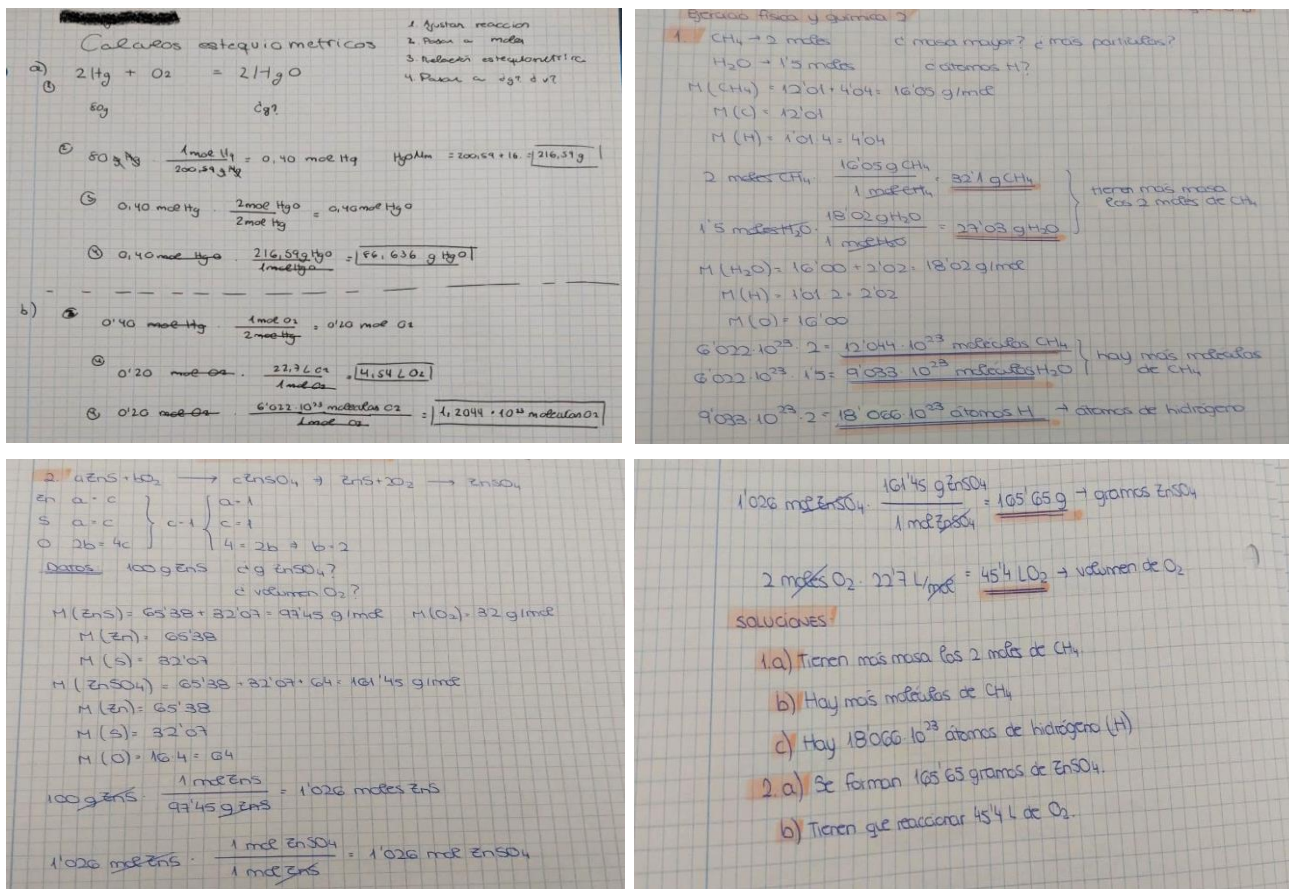 Calculos estequiometricos
1. Ajustar reaccion
2. Pasar a moles
3. Relación estequiometrica
4. Pasar a ¿g? ¿v?
a) 2 Hg + O2 = 2 HgO
①
80g ¿g?
② 80 g Hg · 1 mol Hg / 200,59 g Hg = 0,40 mol Hg HgO Mm = 200,59 + 16 = 216,59 g
③ 0,40 mol Hg · 2 mol HgO / 2 mol Hg = 0,40 mol HgO
④ 0,40 mol HgO · 216,59 g HgO / 1 mol HgO = 86,636 g HgO
b) 0'40 mol Hg · 1 mol O2 / 2 mol Hg = 0'20 mol O2
④ 0'20 mol O2 · 22,7 L O2 / 1 mol O2 = 4,54 L O2
0'20 mol O2 · 6'022·10²³ moleculas O2 / 1 mol O2 = 1,2044 · 10²³ moleculas O2
Ejercicio física y química 2
1. CH4 → 2 moles ¿masa mayor? ¿más partículas?
H2O → 1'5 moles ¿átomos H?
M(CH4) = 12'01 + 4'04 = 16'05 g/mol
M(C) = 12'01
M(H) = 1'01·4 = 4'04
2 moles CH4 · 16'05 g CH4 / 1 mol CH4 = 32'1 g CH4
1'5 moles H2O · 18'02 g H2O / 1 mol H2O = 27'03 g H2O
tienen más masa
los 2 moles de CH4
M(H2O) = 16'00 + 2'02 = 18'02 g/mol
M(H) = 1'01·2 = 2'02
M(O) = 16'00
6'022·10²³ · 2 = 12'044·10²³ moléculas CH4
6'022·10²³ · 1'5 = 9'033·10²³ moléculas H2O
hay más moléculas
de CH4
9'033·10²³ · 2 = 18'066·10²³ átomos H → átomos de hidrógeno
2. aZnS + bO2 → cZnSO4 → ZnS + 2O2 → ZnSO4
Zn a = c
S a = c
O 2b = 4c
c = 1
a = 1
c = 1
4 = 2b → b = 2
Datos 100 g ZnS ¿g ZnSO4?
¿volumen O2?
M(ZnS) = 65'38 + 32'07 = 97'45 g/mol M(O2) = 32 g/mol
M(Zn) = 65'38
M(S) = 32'07
M(ZnSO4) = 65'38 + 32'07 + 64 = 161'45 g/mol
M(Zn) = 65'38
M(S) = 32'07
M(O) = 16·4 = 64
100 g ZnS · 1 mol ZnS / 97'45 g ZnS = 1'026 moles ZnS
1'026 mol ZnS · 1 mol ZnSO4 / 1 mol ZnS = 1'026 mol ZnSO4
1'026 mol ZnSO4 · 161'45 g ZnSO4 / 1 mol ZnSO4 = 165'65 g → gramos ZnSO4
2 moles O2 · 22'7 L/mol = 45'4 L O2 → volumen de O2
SOLUCIONES:
1.a) Tienen más masa los 2 moles de CH4
b) Hay más moléculas de CH4
c) Hay 18'066·10²³ átomos de hidrógeno (H)
2.a) Se forman 165'65 gramos de ZnSO4.
b) Tienen que reaccionar 45'4 L de O2.